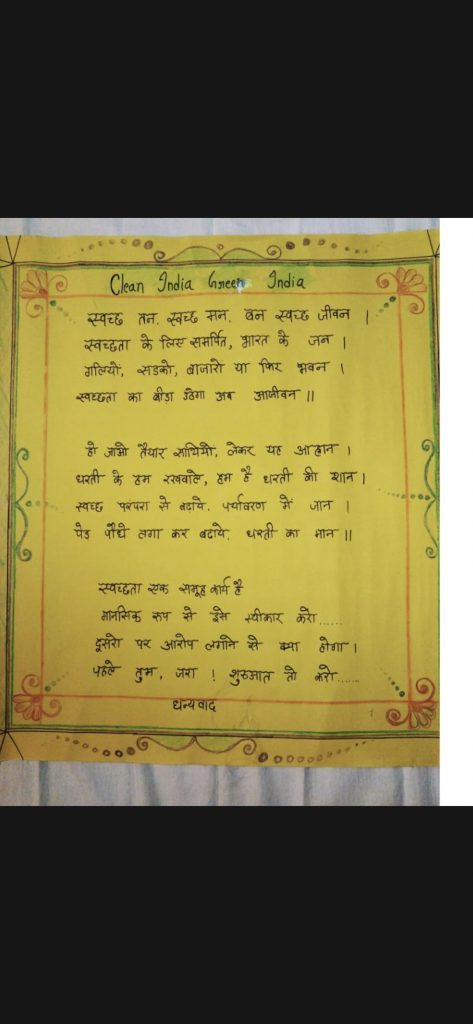 Clean India Green India
स्वच्छ तन, स्वच्छ मन, बन स्वच्छ जीवन ।
स्वच्छता के लिए समर्पित, भारत के जन ।
गलियो, सडको, बाजारो या फिर भवन ।
स्वच्छता का बीडा उठेगा अब आजीवन ॥
हो जाओ तैयार साथियो, लेकर यह आह्वान ।
धरती के हम रखवाले, हम है धरती की शान ।
स्वच्छ परंपरा से बढाये, पर्यावरण में जान ।
पेड पौधे लगा कर बढाये, धरती का मान ॥
स्वच्छता एक समूह कार्य है
मानसिक रूप से इसे स्वीकार करो......
दूसरो पर आरोप लगाने से क्या होगा ।
पहले तुम, जरा ! शुरुआत तो करो......
धन्यवाद